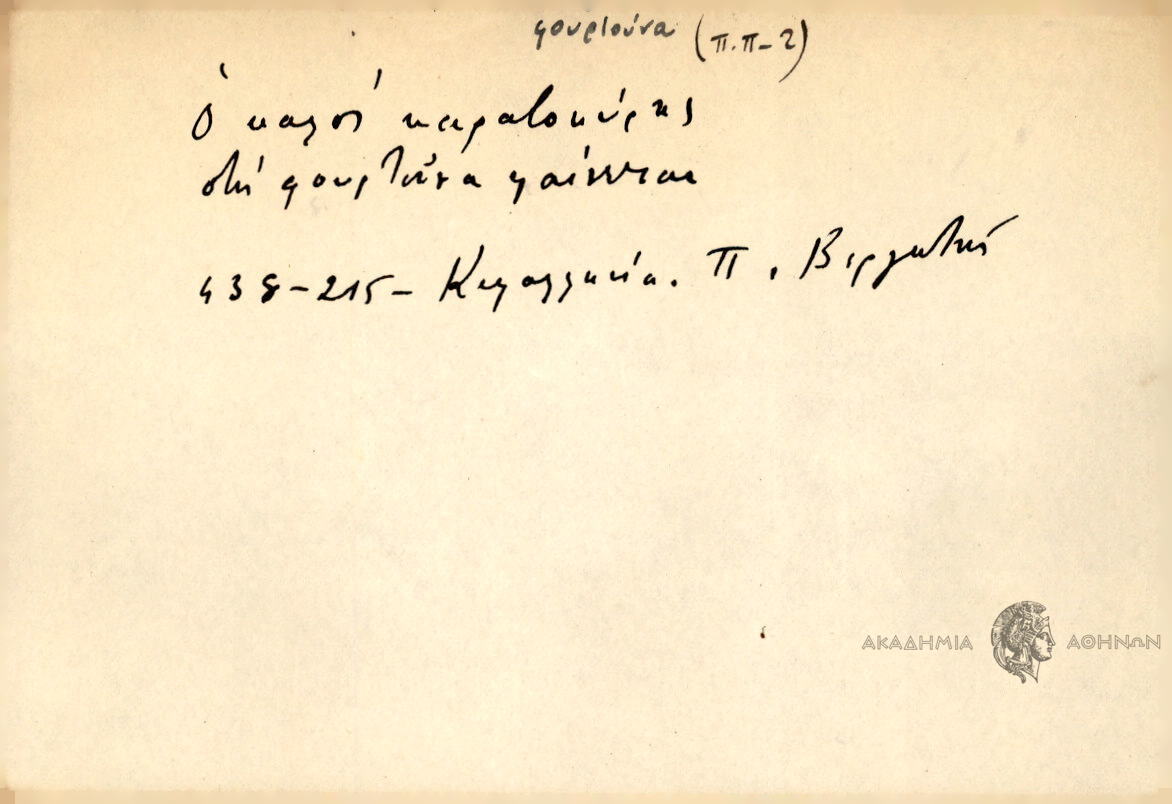 φουρτούνα (π.π-2)
Ὁ καλός καραβοκύρης
στή φουρτοῦνα φαίνεται
438-215- Κεφαλληνία. Π. Βεργωτής
ΑΚΑΔΗΜΙΑ ΑΘΗΝΩΝ